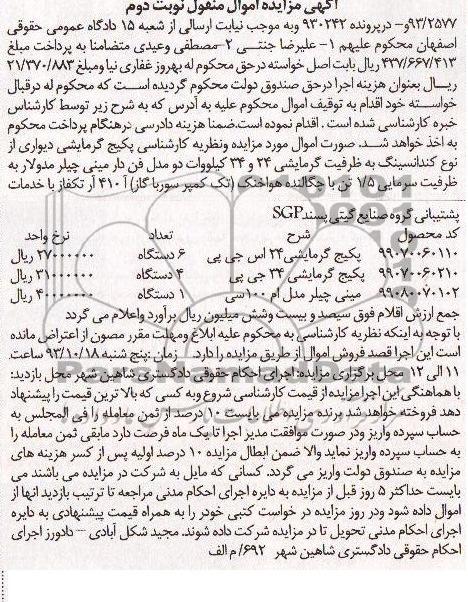 آگهی مزایده اموال منقول نوبت دوم
۹۳/۲۵۷۷و- درپرونده ۹۳۰۲۴۲ وبه موجب نیابت ارسالی از شعبه ۱۵ دادگاه عمومی حقوقی
اصفهان محکوم علیهم ۱- علیرضا جنتی ۲-مصطفی وعیدی متضامنا به پرداخت مبلغ
۴۳۷/۶۶۷/۴۱۳ ریال بابت اصل خواسته درحق محکوم له بهروز غفاری نیا ومبلغ ۲۱/۳۷۰/۸۸۳
ریال بعنوان هزینه اجرا درحق صندوق دولت محکوم گردیده است که محکوم له درقبال
خواسته خود اقدام به توقیف اموال محکوم علیه به آدرس که به شرح زیر توسط کارشناس
خبره کارشناسی شده است . اقدام نموده است.ضمنا هزینه دادرسی درهنگام پرداخت محکوم
به اخذ خواهد شد. صورت اموال مورد مزایده ونظریه کارشناسی پکیج گرمایشی دیواری از
نوع کندانسینگ به ظرفیت گرمایشی ۲۴ و ۳۴ کیلووات دو مدل فن دار مینی چیلر مدولار به
ظرفیت سرمایی ۱/۵ تن با چگالنده هواخنک (تک کمپرسوربا گاز) آ ۴۱۰ آر تکفاز با خدمات
پشتیبانی گروه صنایع گیتی پسندSGP
کد محصول شرح تعداد نرخ واحد
۹۹۰۷۰۰۶۰۱۱۰ پکیج گرمایشی۲۴ اس جی پی ۶ دستگاه ۲۷۰۰۰۰۰۰ ریال
۹۹۰۷۰۰۶۰۲۱۰ پکیج گرمایشی ۳۴ جی پی ۴ دستگاه ۳۱۰۰۰۰۰۰ ریال
۹۹۰۸۰۰۷۰۱۰۲ مینی چیلر مدل ام ۱۰۰سی ۱ دستگاه ۴۰۰۰۰۰۰۰ ریال
جمع ارزش اقلام فوق سیصد و بیست وشش میلیون ریال برآورد واعلام می گردد
با توجه به اینکه نظریه کارشناسی به محکوم علیه ابلاغ ومهلت مقرر مصون از اعتراض مانده
است این اجرا قصد فروش اموال از طریق مزایده را دارد زمان :پنج شنبه ۹۳/۱۰/۱۸ ساعت
۱۱ الی ۱۲ محل برگزاری مزایده:اجرای احکام حقوقی دادگستری شاهین شهر محل بازدید:
با هماهنگی این اجرامزایده از قیمت کارشناسی شروع وبه کسی که بالا ترین قیمت را پیشنهاد
دهد فروخته خواهد شد.برنده مزایده می بایست ۱۰درصد از ثمن معامله را فی المجلس به
حساب سپرده واریز ودر صورت موافقت مدیر اجرا تا یک ماه فرصت دارد مابقی ثمن معامله را
به حساب سپرده واریز نماید والا ضمن ابطال مزایده ۱۰ درصد اولیه پس از کسر هزینه های
مزایده به صندوق دولت واریز می گردد. کسانی که مایل به شرکت در مزایده می باشند می
بایست حداکثر ۵ روز قبل از مزایده به دایره اجرای احکام مدنی مراجعه تا ترتیب بازدید انها از
اموال داده شود ودر روز مزایده در خواست کتبی خود را به همراه قیمت پیشنهادی به دایره
اجرای احکام مدنی تحویل تا در مزایده شرکت داده شوند. مجید شکل آبادی – دادورز اجرای
احکام حقوقی دادگستری شاهین شهر ۶۹۲/ م الف